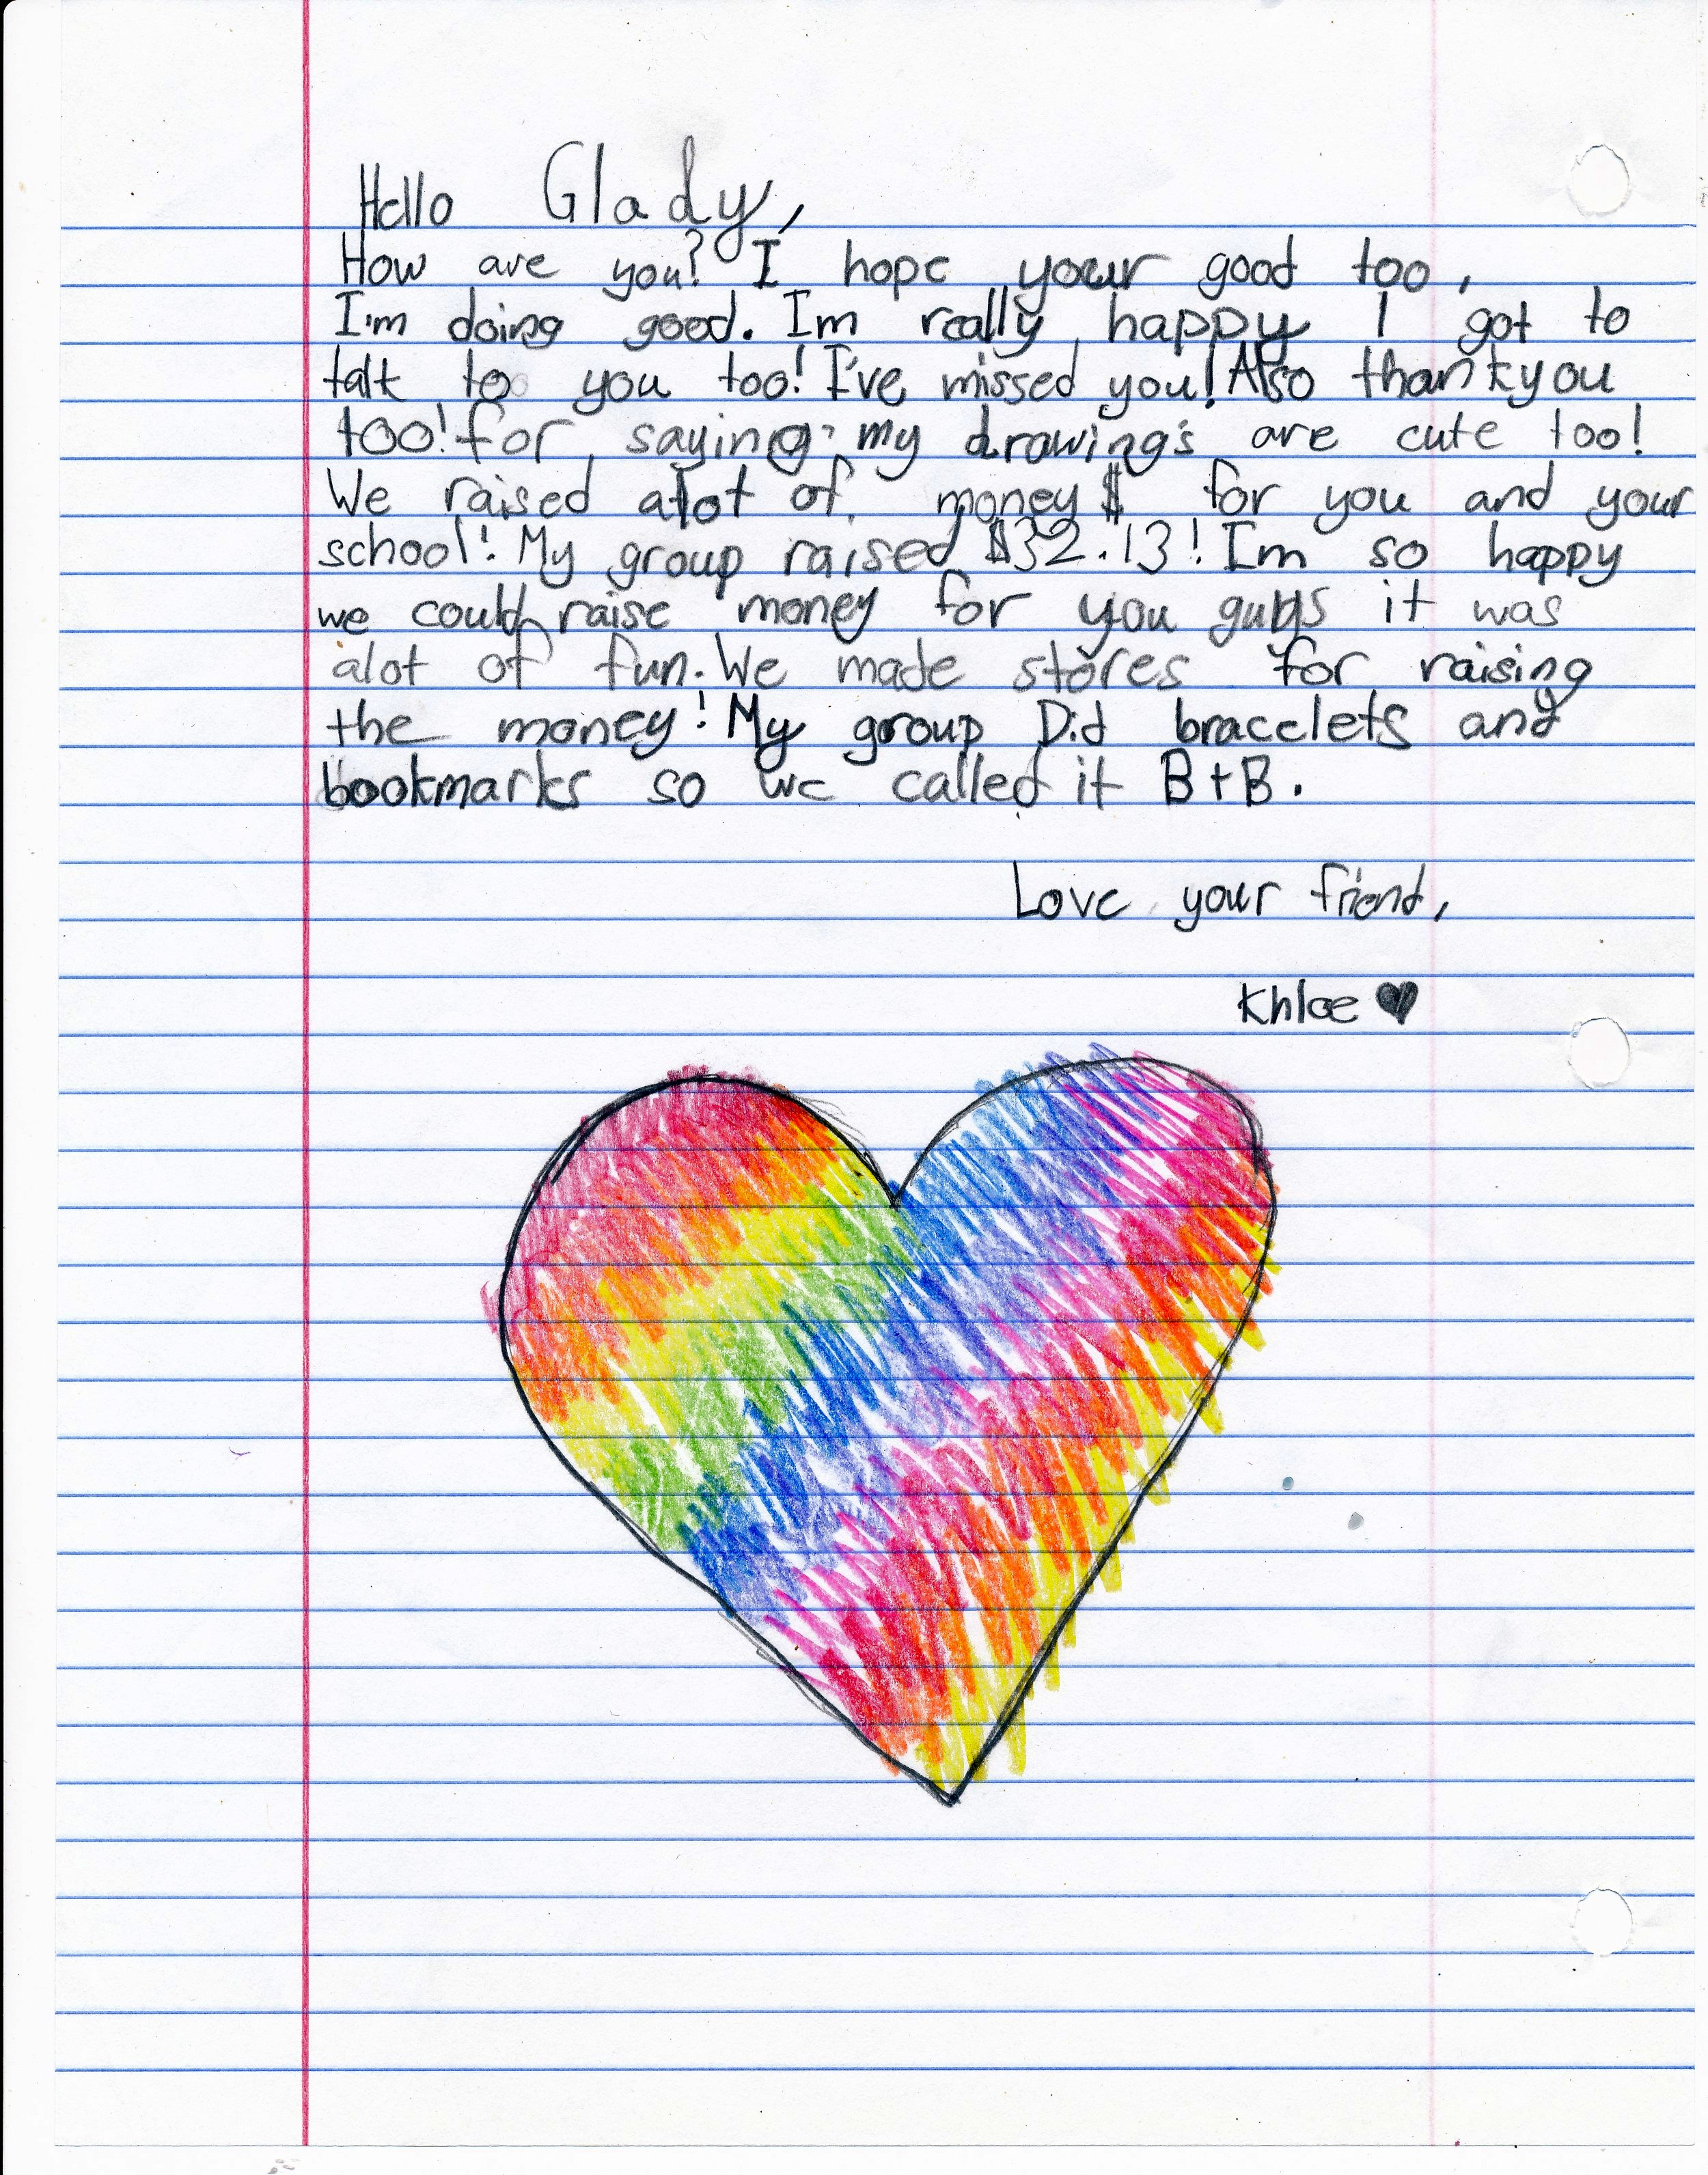 Hello Glady,
How are you? I hope your good too,
I'm doing good. Im really happy I got to
talk to you too! I've missed you! Also thankyou
too! for saying my drawing's are cute too!
We raised alot of money $ for you and your
school! My group raised $32.13! Im so happy
we could raise money for you guys it was
alot of fun. We made stores for raising
the money! My group Did bracelets and
bookmarks so we called it B+B.
Love your friend,
Khloe ♥